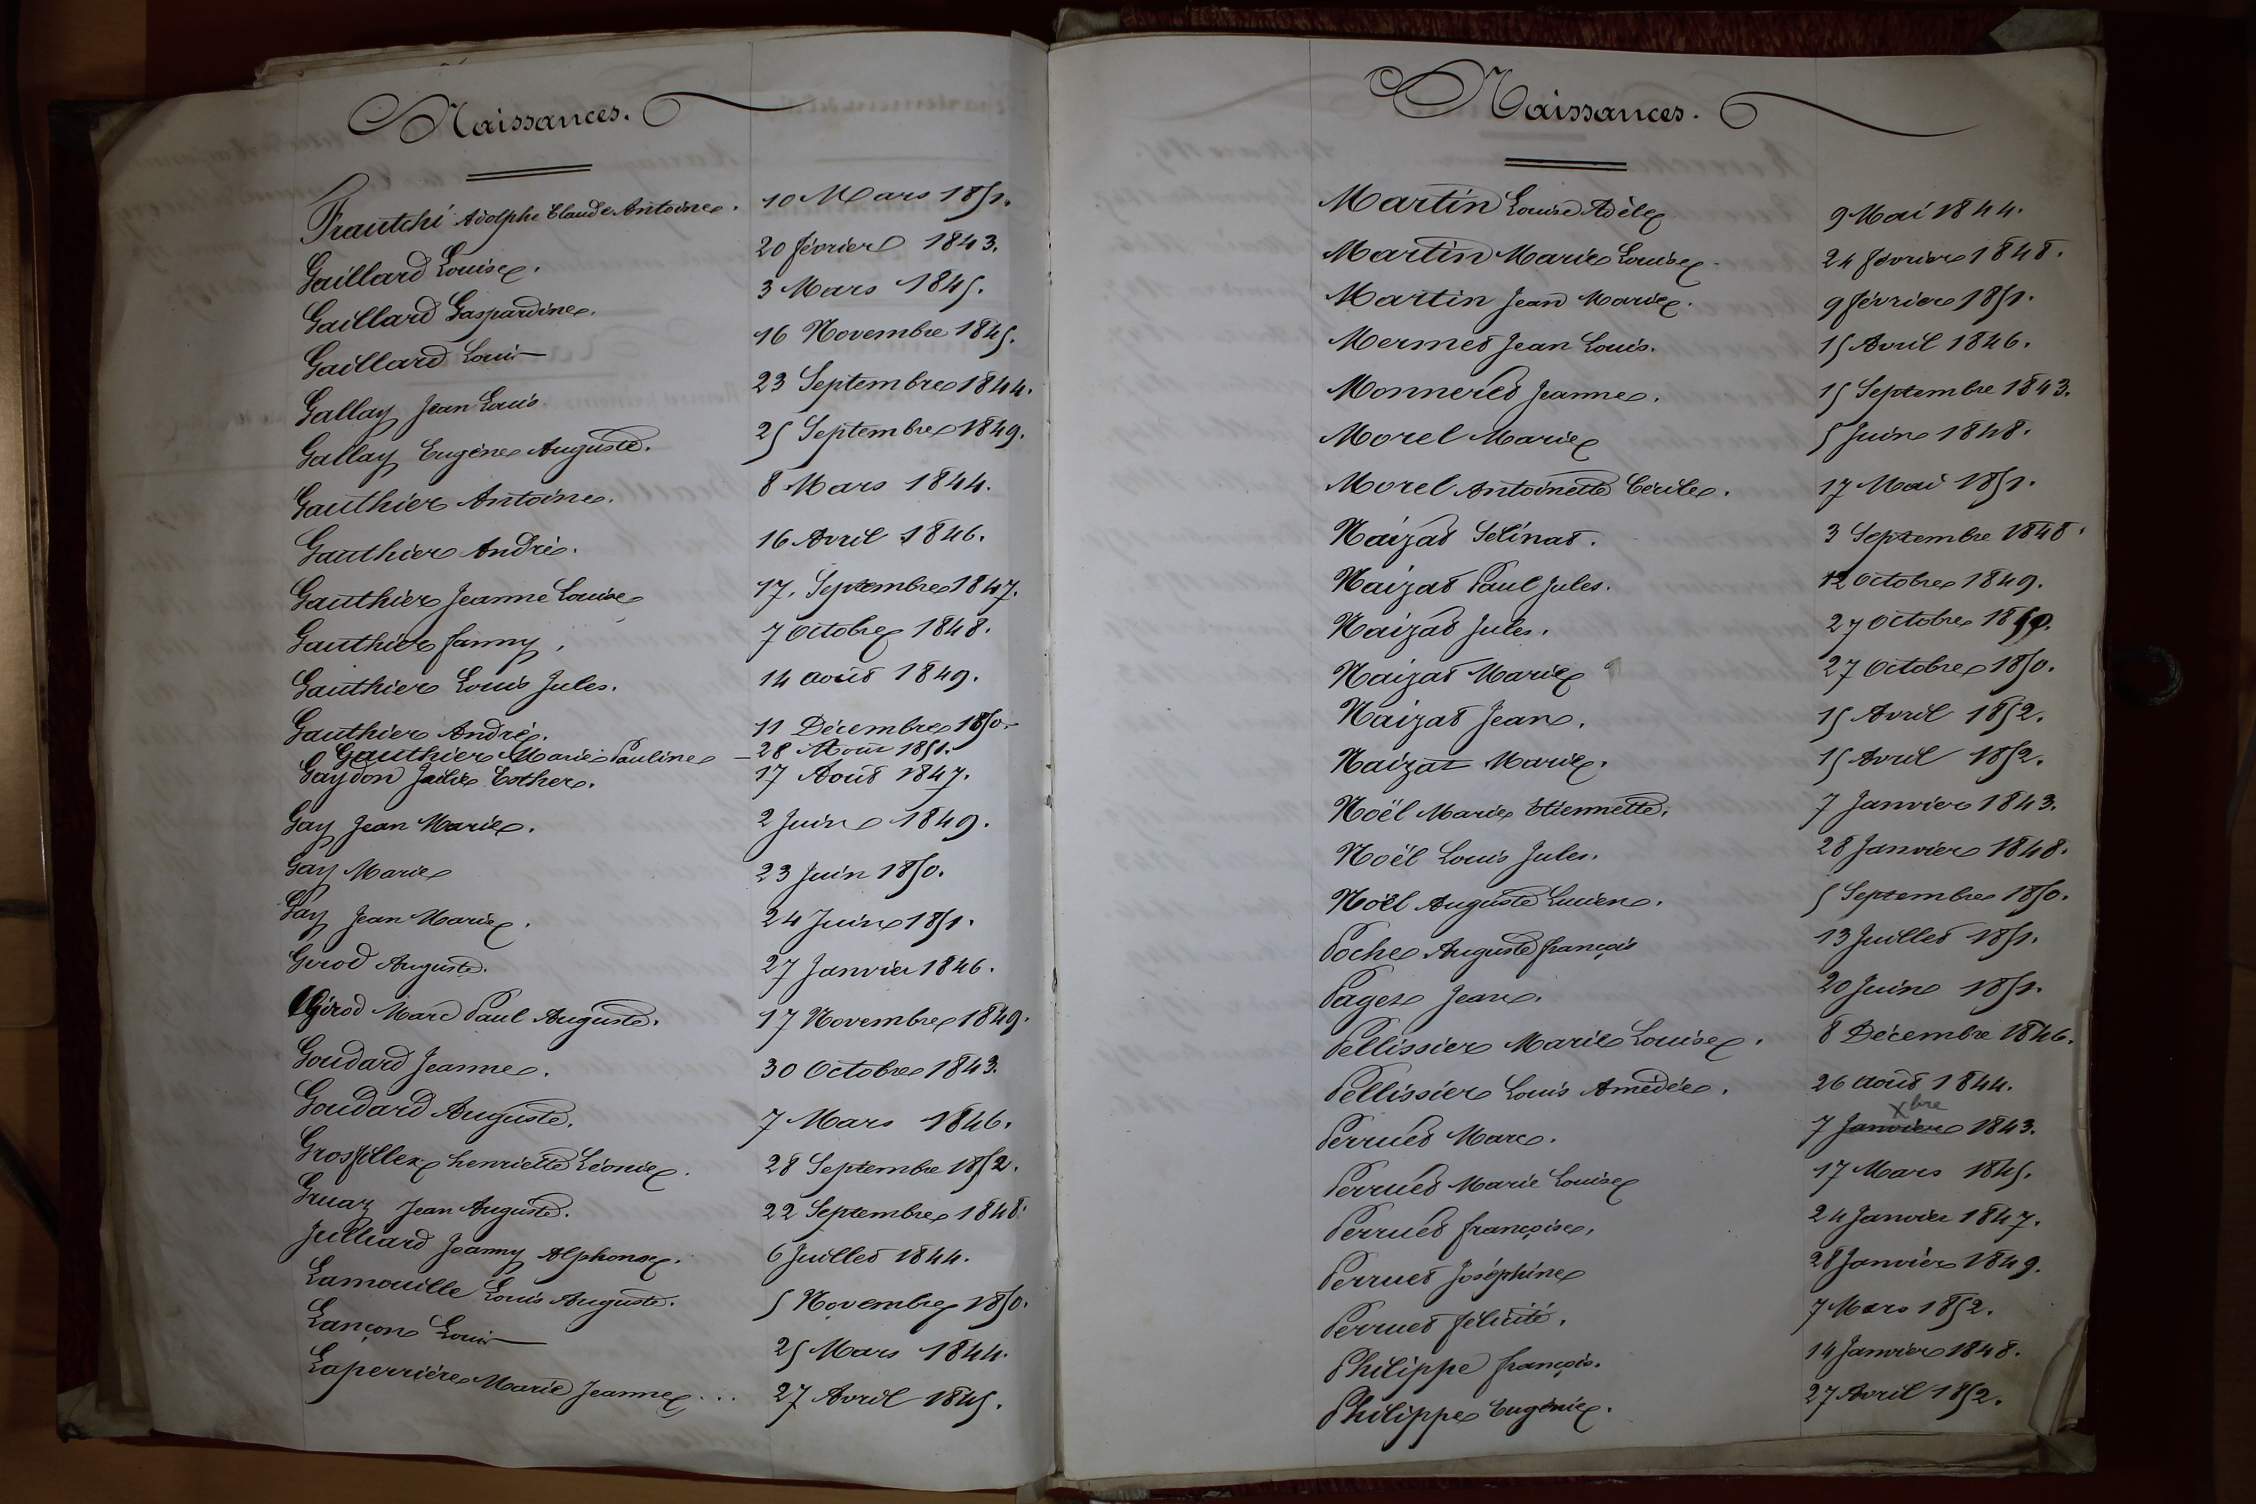 Naissances.
Frautchi Adolphe Claude Antoine. 10 Mars 1851.
Gaillard Louise. 20 février 1843.
Gaillard Gaspardine. 3 Mars 1845.
Gaillard Louis 16 Novembre 1845.
Gallay Jean Louis 23 Septembre 1844.
Gallay Eugène Auguste. 25 Septembre 1849.
Gauthier Antoine. 8 Mars 1844.
Gauthier André. 16 Avril 1846.
Gauthier Jeanne Louise 17. Septembre 1847.
Gauthier fanny. 7 Octobre 1848.
Gauthier Louis Jules. 14 août 1849.
Gauthier André. 11 Décembre 1850.
Gauthier Marie Pauline – 28 Août 1851.
Gaydon Julie Esther. 17 Août 1847.
Gay Jean Marie. 2 Juin 1849.
Gay Marie 23 Juin 1850.
Gay Jean Marie. 24 Juin 1851.
Girod Auguste. 27 Janvier 1846.
Girod Marc Paul Auguste. 17 Novembre 1849.
Goudard Jeanne. 30 Octobre 1843.
Goudard Auguste. 7 Mars 1846.
Grosfillex henriette Léonie. 28 Septembre 1852.
Gruaz Jean Auguste. 22 Septembre 1848.
Julliard Joanny Alphonse. 6 Juillet 1844.
Lamouille Louis Auguste. 5 Novembre 1850.
Lançon Louis 25 Mars 1844.
Laperrière Marie Jeanne... 27 Avril 1845.
Naissances.
Martin Louise Adèle 9 Mai 1844.
Martin Marie Louise 24 février 1848.
Martin Jean Marie. 9 février 1851.
Mermet Jean Louis. 15 Avril 1846.
Monneret Jeanne. 15 Septembre 1843.
Morel Marie 5 Juin 1848.
Morel Antoinette Cécile. 17 Mai 1851.
Naizat Sélinat. 3 Septembre 1848.
Naizat Paul Jules. 12 Octobre 1849.
Naizat Jules. 27 Octobre 1850.
Naizat Marie 27 Octobre 1850.
Naizat Jean. 15 Avril 1852.
Naizat Marie. 15 Avril 1852.
Noël Marie Etiennette. 7 Janvier 1843.
Noël Louis Jules. 28 Janvier 1848.
Noël Auguste Lucien. 5 Septembre 1850.
Poche Auguste françois 13 Juillet 1851.
Paget Jean. 20 Juin 1851.
Pellissier Marie Louise. 8 Décembre 1846.
Pellissier Louis Amédée. 26 août 1844.
Perruet Marc. 7 Janvier Xbre 1843.
Perruet Marie Louise 17 Mars 1845.
Perruet françoise. 24 Janvier 1847.
Perruet Joséphine 28 Janvier 1849.
Perruet félicité. 7 Mars 1852.
Philippe françois. 14 Janvier 1848.
Philippe Eugénie. 27 Avril 1852.